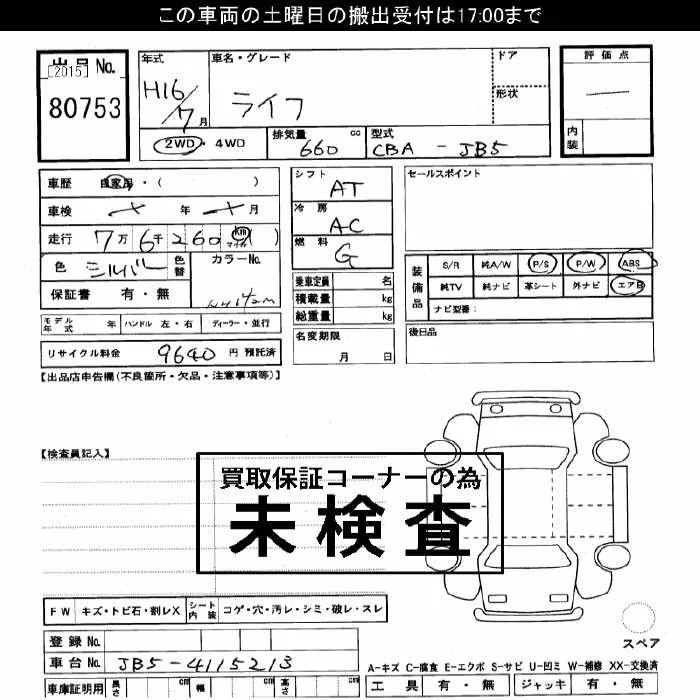 この車両の土曜日の搬出受付は17:00まで
出品No.
[2015]
80753
年式
H16/7月
車名・グレード
ライフ
ドア
形状
評価点
内装
2WD・4WD
排気量 660 cc
型式 CBA-JB5
車歴 自家用・( )
車検 年 月
走行 7万6千260 km マイル ( )
色 シルバー 色替 カラーNo.
保証書 有・無
シフト AT
冷房 AC
燃料 G
乗車定員 名
積載量 kg
総重量 kg
セールスポイント
装備品
S/R 純A/W P/S P/W ABS
純TV 純ナビ 革シート 外ナビ エアB
ナビ型番:
モデル年式 年 ハンドル 左・右 ディーラー・並行
リサイクル料金 9640 円 預託済
名変期限
月 日
後日品
【出品店申告欄(不良箇所・欠品・注意事項等)】
【検査員記入】
買取保証コーナーの為
未検査
FW キズ・トビ石・割レX シート内装 コゲ・穴・汚レ・シミ・破レ・スレ
登録No.
車台No. JB5-4115213
車庫証明用 長さ cm 幅 cm 高さ cm
スペア
A-キズ C-腐食 E-エクボ S-サビ U-凹ミ W-補修 XX-交換済
工具 有・無 ジャッキ 有・無